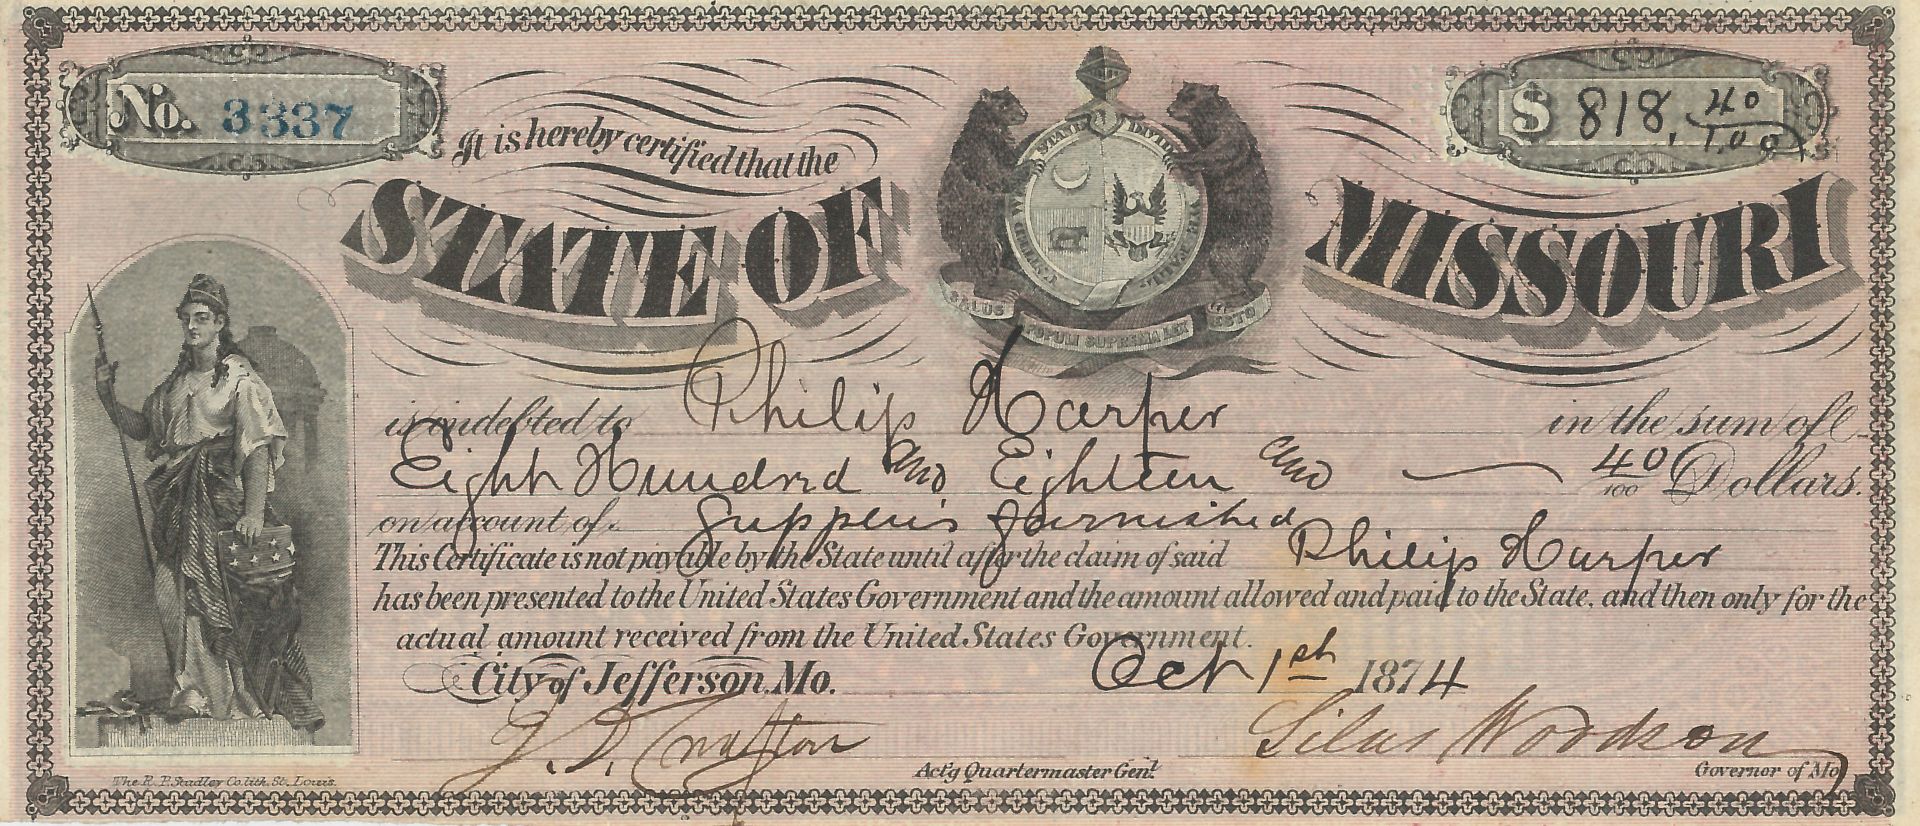 No. 3337
$ 818. 40/100
It is hereby certified that the
STATE OF MISSOURI
UNITED WE STAND DIVIDED WE FALL
SALUS POPULI SUPREMA LEX ESTO
is indebted to Philip Harper in the sum of
Eight Hundred and Eighteen and — 40/100 Dollars.
on account of Supplies furnished
This Certificate is not payable by the State until after the claim of said Philip Harper
has been presented to the United States Government and the amount allowed and paid to the State, and then only for the
actual amount received from the United States Government.
City of Jefferson, Mo. Oct 1st 1874
J. D. Crafton Silas Woodson
Act'g Quartermaster Genl. Governor of Mo
The R. P. Studley Co. lith. St. Louis.